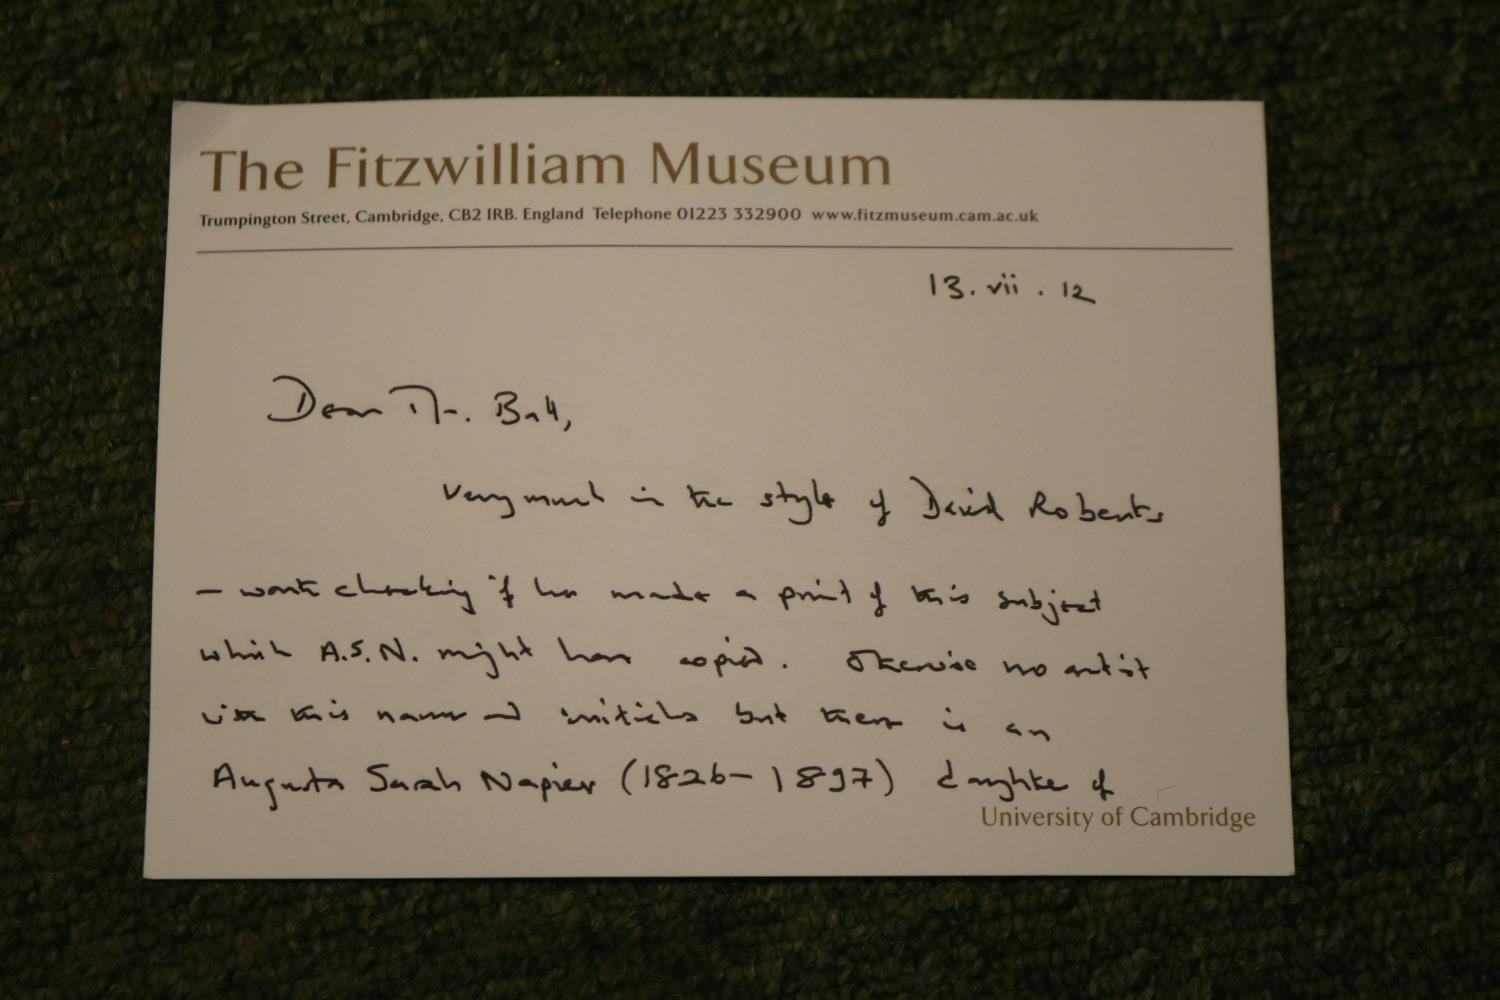 The Fitzwilliam Museum
Trumpington Street, Cambridge, CB2 1RB. England Telephone 01223 332900 www.fitzmuseum.cam.ac.uk
13. vii . 12
Dear Mr. Ball,
Very much in the style of David Roberts
— worth checking if he made a print of this subject
which A.S.N. might have copied. Otherwise no artist
with this name and initials but there is an
Augusta Sarah Napier (1826-1897) daughter of
University of Cambridge